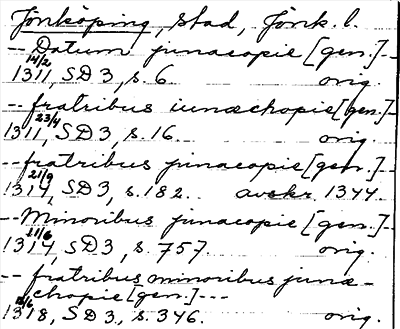 Jönköping, stad, Jönk. l.
-- Datum junacopie [gen.] --
14/2 1311, SD 3, s. 6. orig.
-- fratribus iunæchopie [gen.] --
23/4 1311, SD 3, s. 16. orig.
-- fratribus junacopie [gen.] --
21/9 1314, SD 3, s. 182. avskr. 1344.
-- Minoribus junacopie [gen.] --
21/6 1314, SD 3, s. 757. orig.
-- fratribus minoribus junæ-
chopie [gen.] ---
1318, SD 3, s. 346. orig.